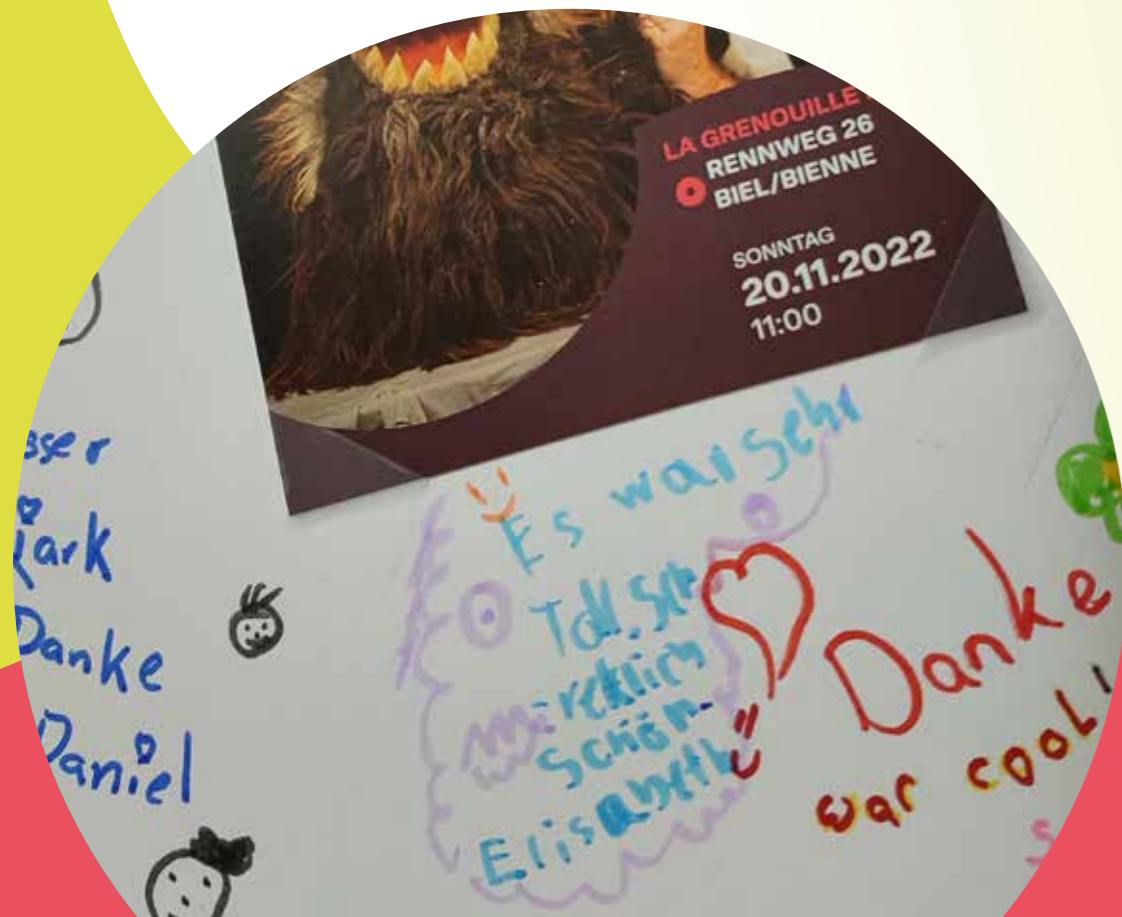 LA GRENOUILLE
RENNWEG 26
BIEL/BIENNE
SONNTAG
20.11.2022
11:00
Danke
Daniel
Es war sehr
Toll.
schön
Elisabeth
Danke
war cool!